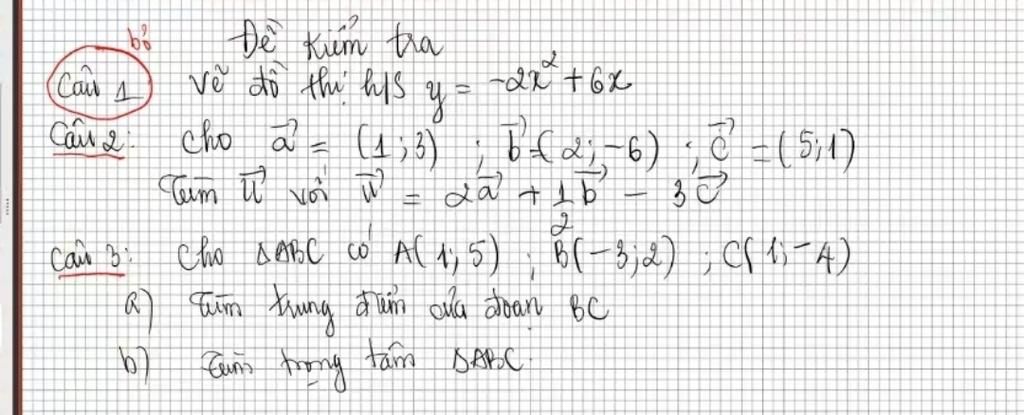 bỏ
Đề kiểm tra
Câu 1 Vẽ đồ thị h/s y = -2x² + 6x
Câu 2: Cho a⃗ = (1;3) ; b⃗ = (2;-6) ; c⃗ = (5;1)
Tìm u⃗ với u⃗ = 2a⃗ + 1/2 b⃗ - 3c⃗
Câu 3: Cho ΔABC có A(1;5) ; B(-3;2) ; C(1;-4)
a) Tìm trung điểm của đoạn BC
b) Tìm trọng tâm ΔABC.